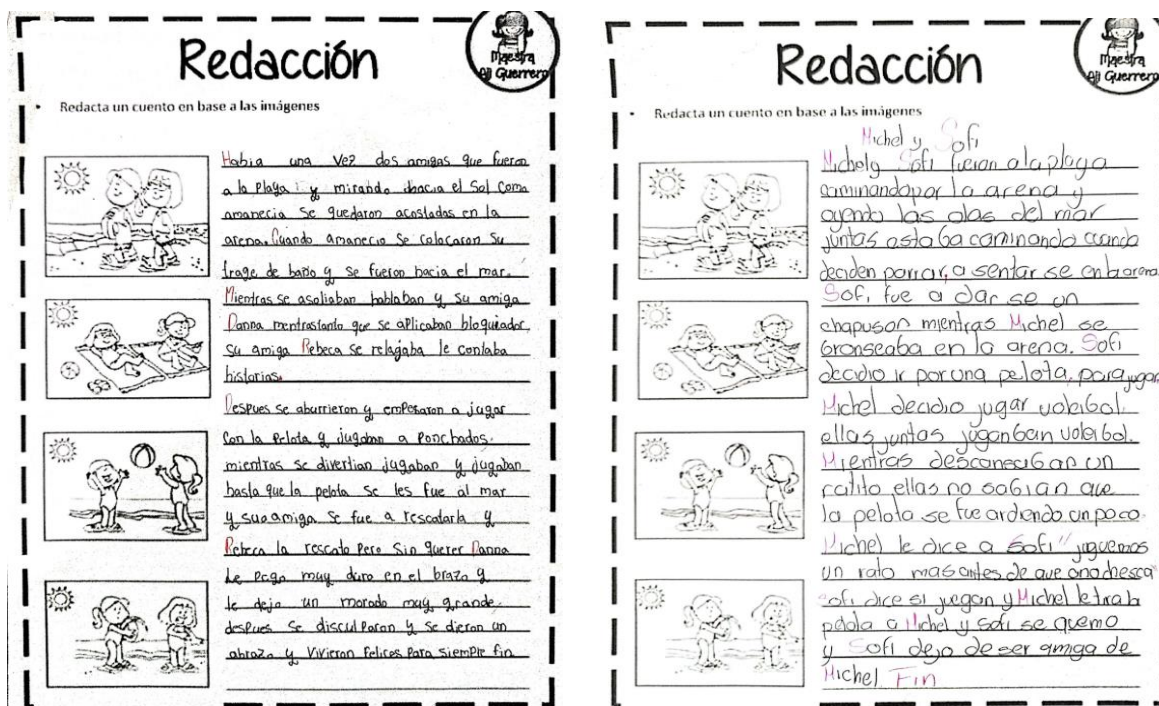 Redacción
Maestra
Ali Guerrero
Redacta un cuento en base a las imágenes
Habia una vez dos amigas que fueron
a la playa y mirando hacia el sol como
amanecia se quedaron acostadas en la
arena. Cuando amanecio se colocaron su
trage de baño y se fueron hacia el mar.
Mientras se asoliaban hablaban y su amiga
Danna mentrastanto que se aplicaban bloquiador,
su amiga Rebeca se relajaba le contaba
historias.
Despues se aburrieron y empesaron a jugar
con la pelota y jugaban a ponchados.
mientras se divertian jugaban y jugaban
hasta que la pelota se les fue al mar
y su amiga se fue a rescatarla y
Rebeca la rescato pero sin querer Danna
le pego muy duro en el brazo y
le dejo un morado muy grande.
despues se disculparon y se dieron un
abrazo y vivieron felices para siempre fin
Redacción
Maestra
Ali Guerrero
Redacta un cuento en base a las imágenes
Michel y Sofi
Michel y Sofi fueron a la playa
caminando por la arena y
oyendo las olas del mar
juntas estaba caminando cuando
deciden parrar, a sentar se en la arena
Sofi fue a dar se un
chapuson mientras Michel se
bronseaba en la arena. Sofi
decidio ir por una pelota, para jugar
Michel decidio jugar voleibol.
ellas juntas voleibol.
Mientras un
ratito ellas no sabian que
la pelota se fue ardiendo un poco.
Michel le dice a Sofi "juguemos
un rato mas antes de que
Sofi dice si juegan y Michel le
pelota a Michel y sofi se quemo
y Sofi dejo de ser amiga de
Michel Fin